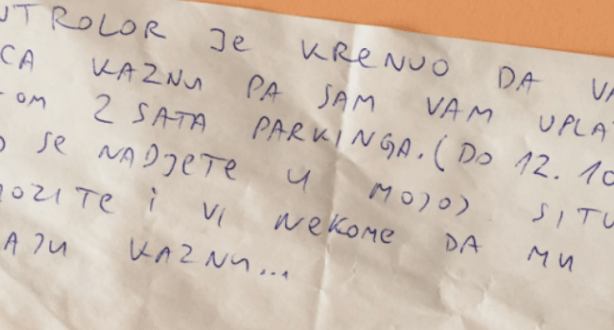 NTROLOR JE KRENUO DA VA
CA KAZNU PA SAM VAM UPLAT
OM 2 SATA PARKINGA. (DO 12.10
O SE NADJETE U MOJOJ SITU
MOZITE I VI NEKOME DA MU
AJU KAZNU...